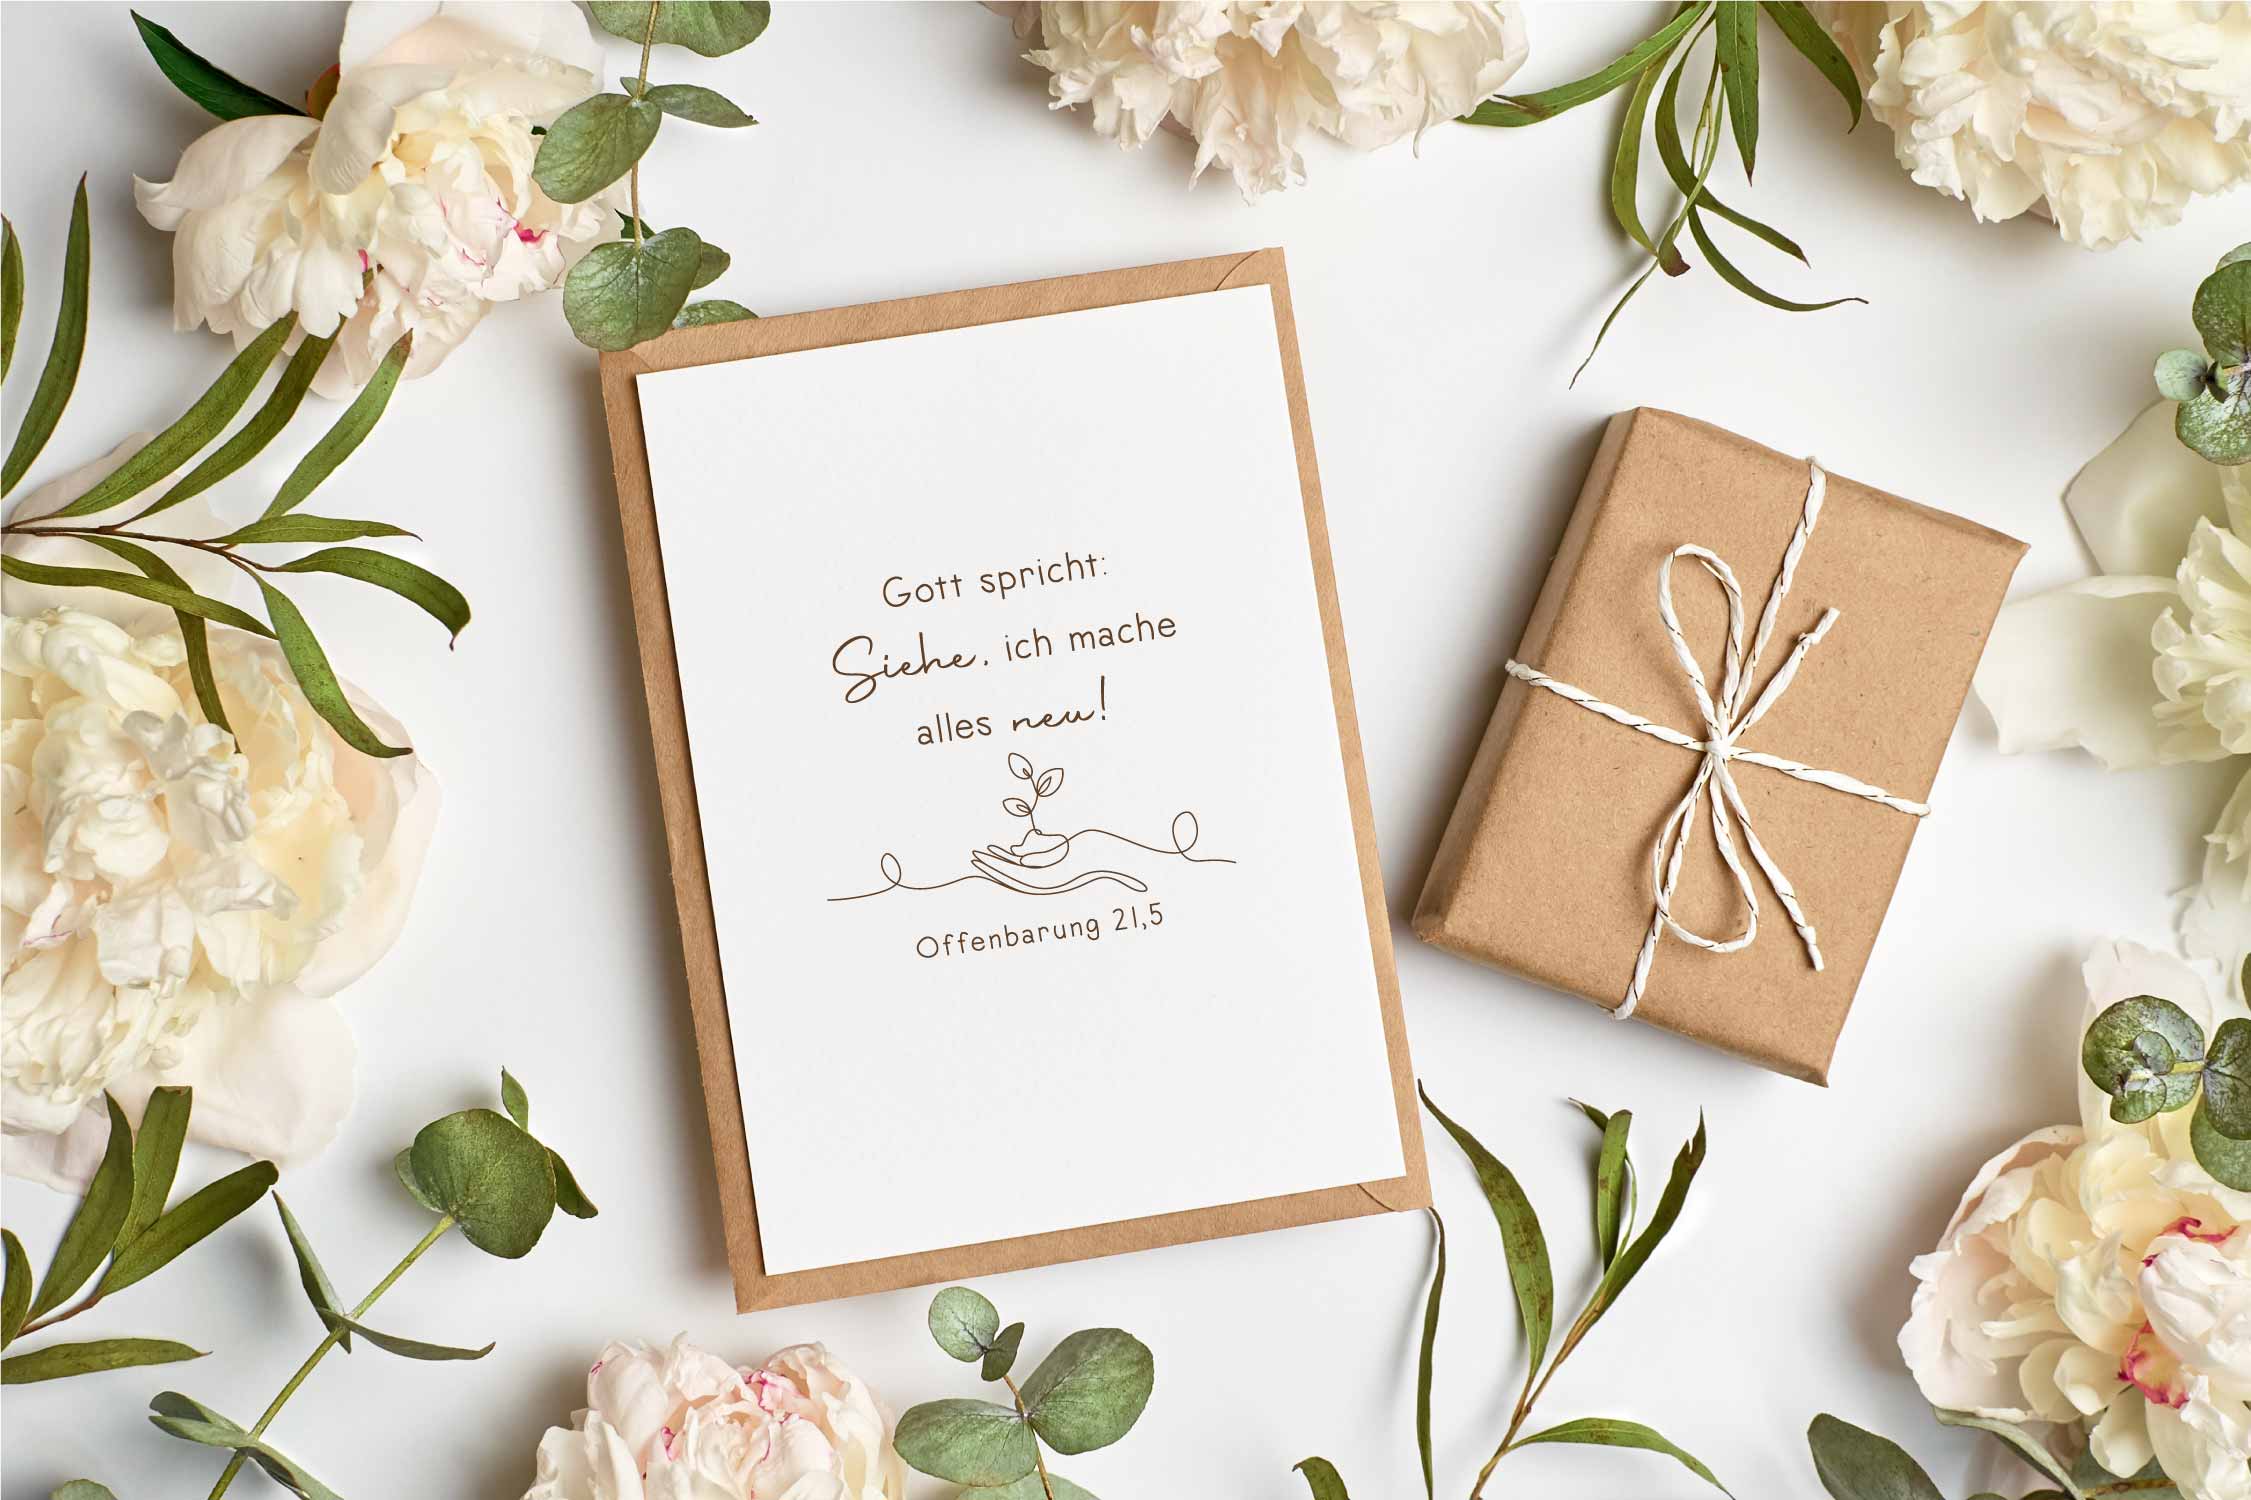 Gott spricht:
Siehe, ich mache
alles neu!
Offenbarung 21,5